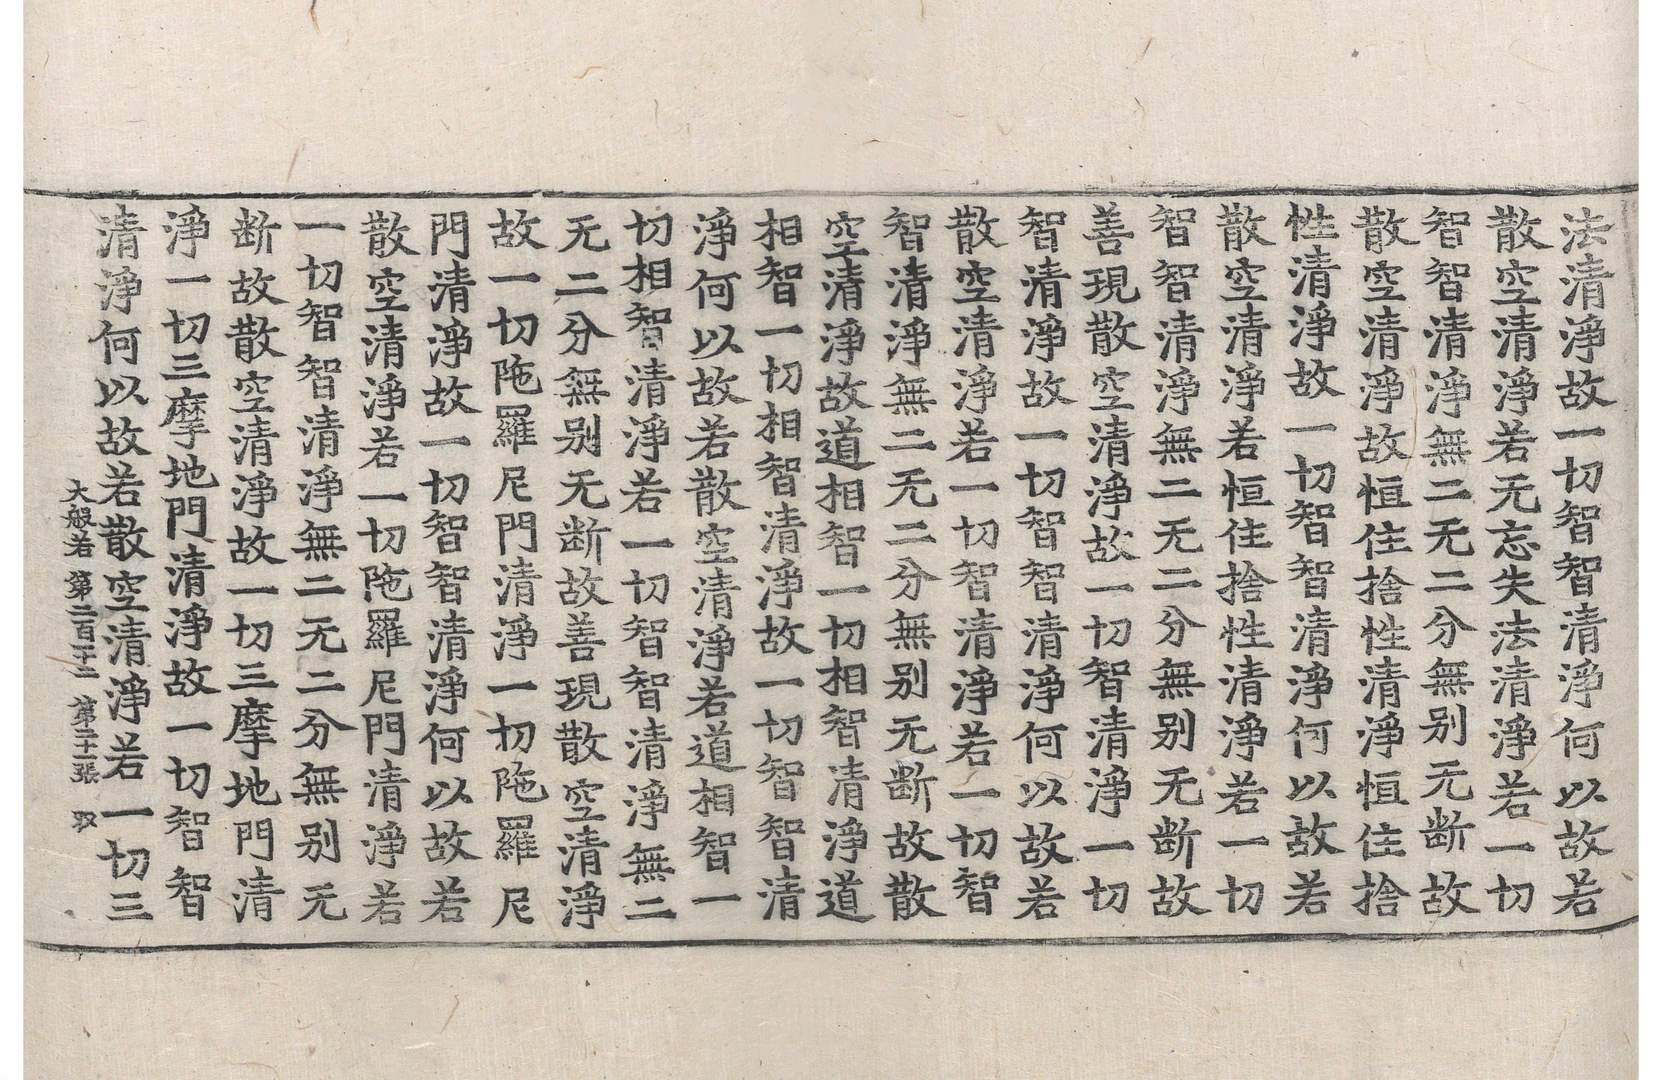 法清淨故一切智智清淨何以故若
散空清淨若无忘失法清淨若一切
智智清淨無二无二分無别无断故
散空清淨故恒住捨性清淨恒住捨
性清淨故一切智智清淨何以故若
散空清淨若恒住捨性清淨若一切
智智清淨無二无二分無别无断故
善現散空清淨故一切智清淨一切
智清淨故一切智智清淨何以故若
散空清淨若一切智清淨若一切智
智清淨無二无二分無别无断故散
空清淨故道相智一切相智清淨道
相智一切相智清淨故一切智智清
淨何以故若散空清淨若道相智一
切相智清淨若一切智智清淨無二
无二分無别无断故善現散空清淨
故一切陁羅尼門清淨一切陁羅尼
門清淨故一切智智清淨何以故若
散空清淨若一切陁羅尼門清淨若
一切智智清淨無二无二分無别无
断故散空清淨故一切三摩地門清
淨一切三摩地門清淨故一切智智
清淨何以故若散空清淨若一切三
大般若 第二百十二 第二十二張 収